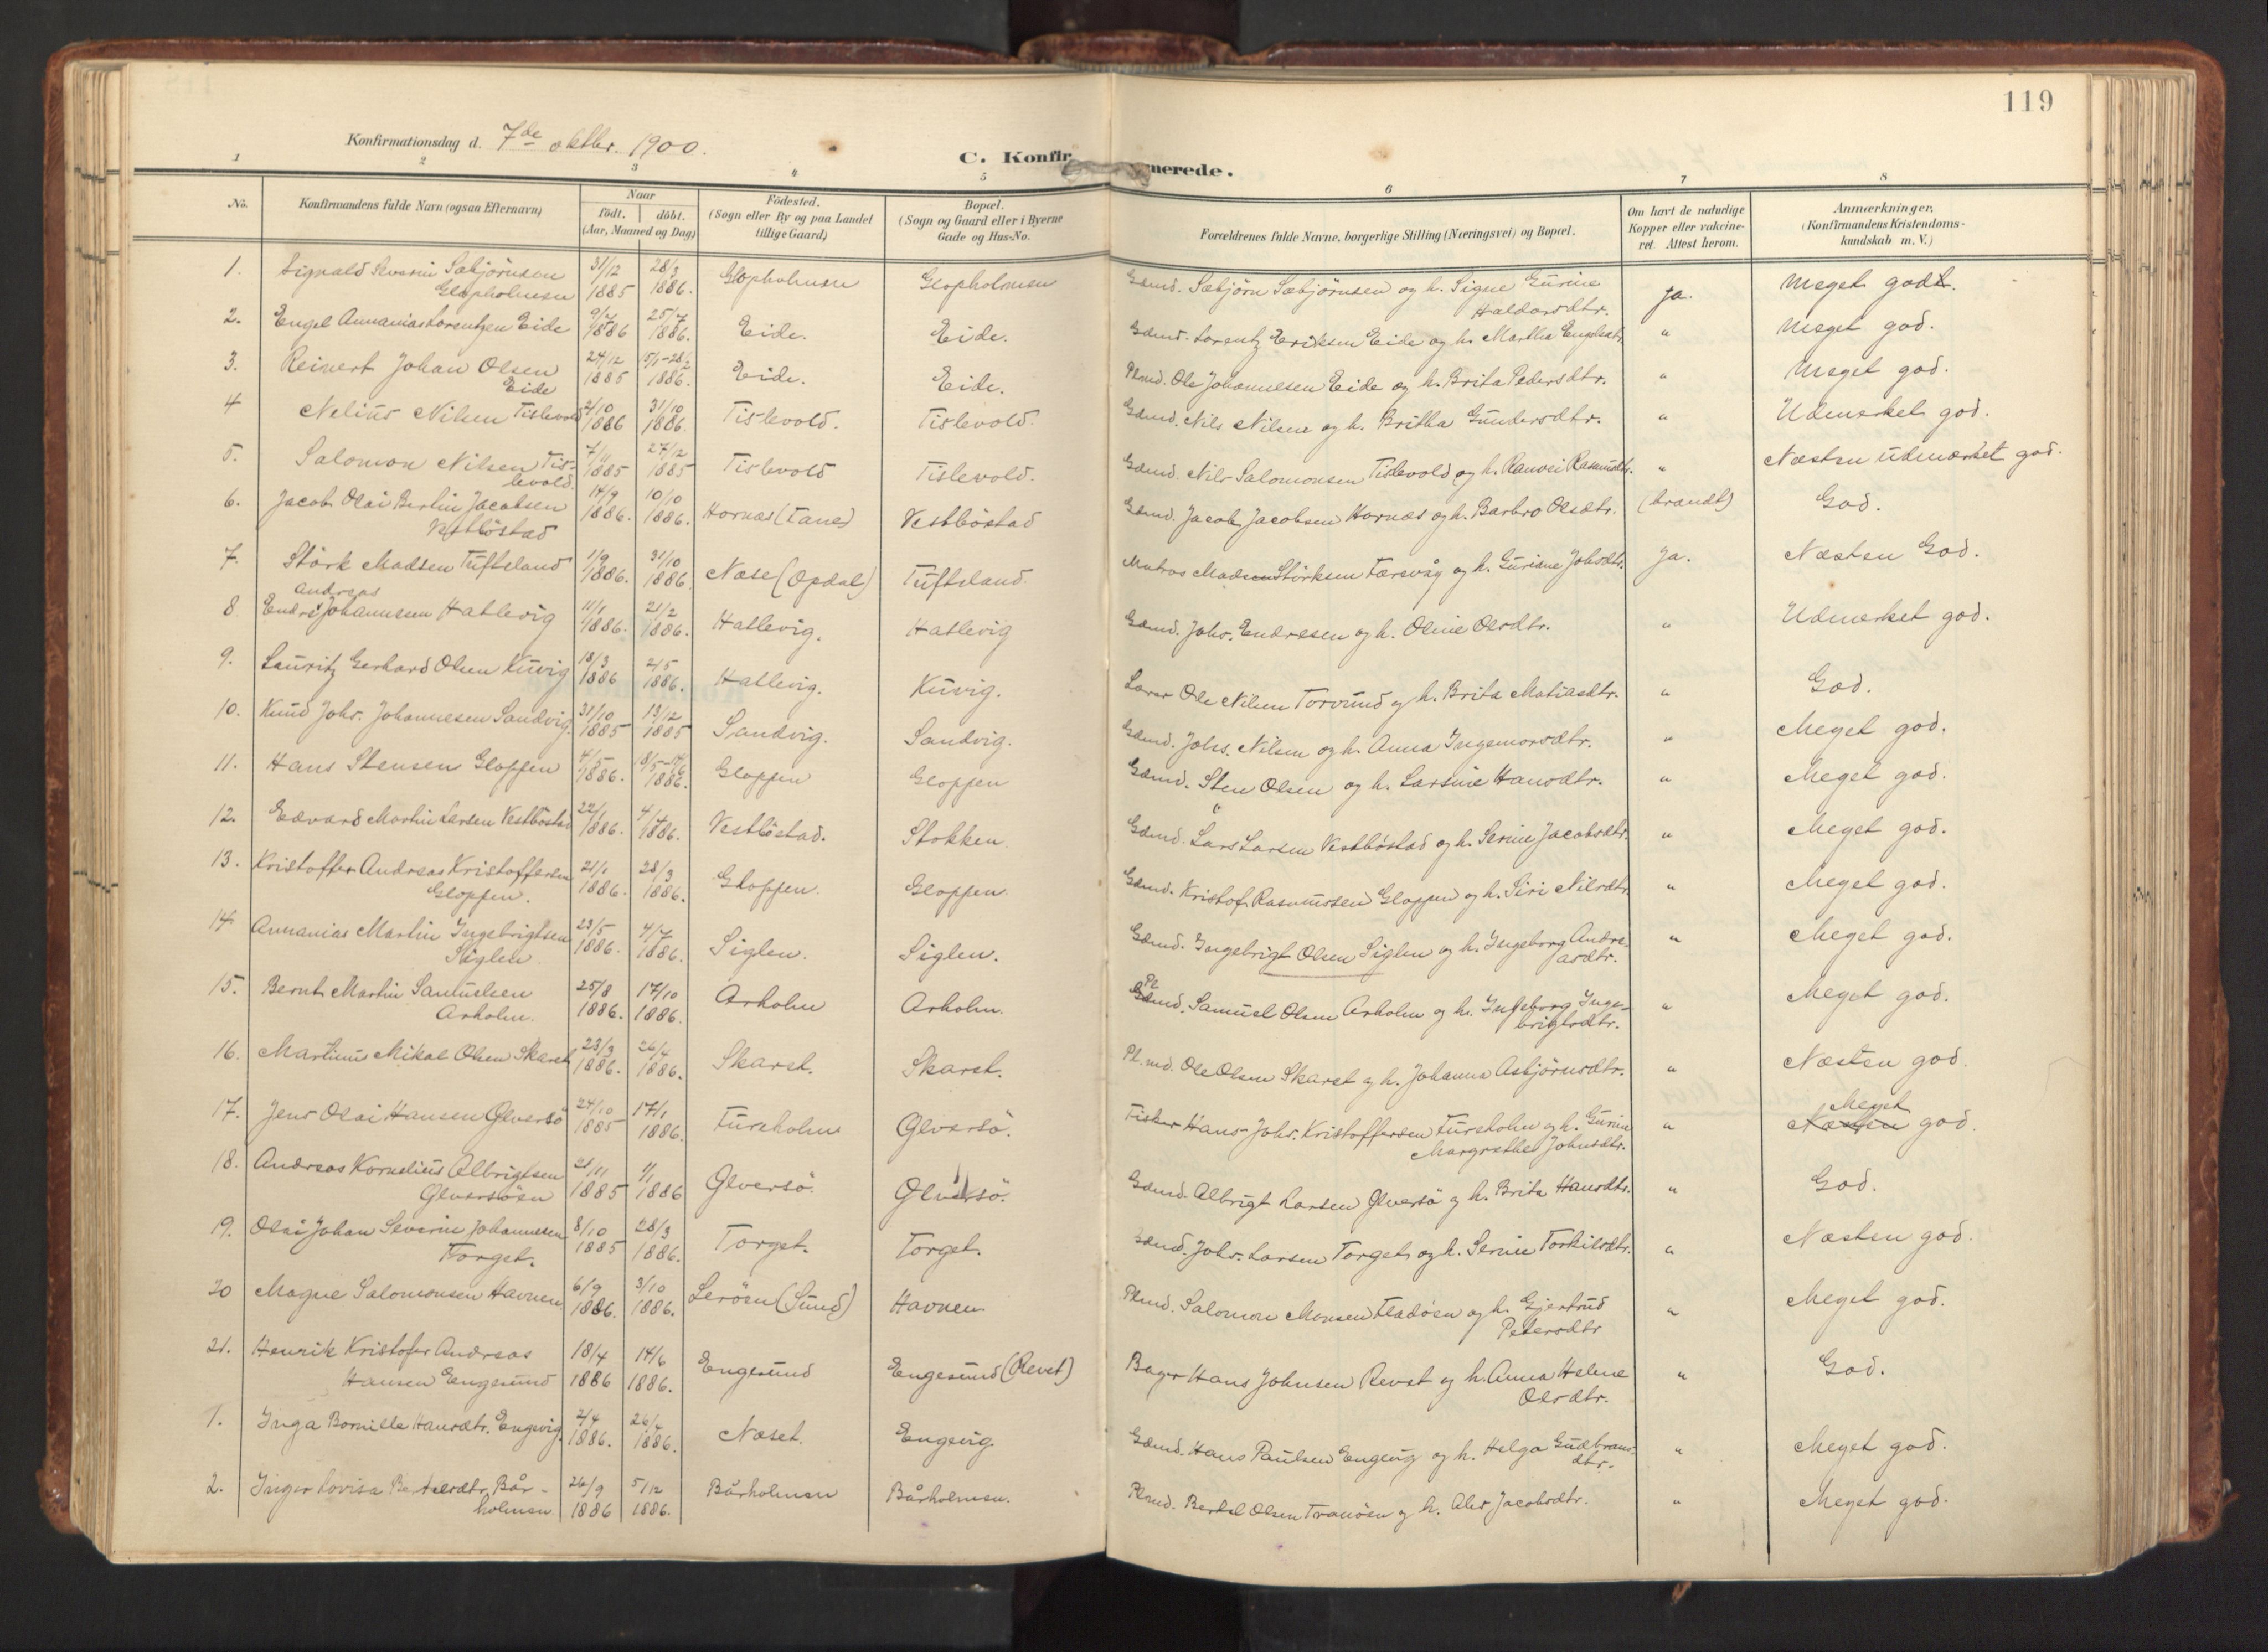 119
Konfirmationsdag d. 7de oktbr. 1900.
C. Konfir merede.
1 2 3 4 5 6 7 8
No. Konfirmandens fulde Navn (ogsaa Efternavn) Naar Födested. Bopæl. Forældrenes fulde Navne, borgerlige Stilling (Næringsvei) og Bopæl. Om havt de naturlige Anmærkninger.
födt. döbt. (Sogn eller By og paa Landet (Sogn og Gaard eller i Byerne Kopper eller vakcine- (Konfirmandens Kristendoms-
(Aar, Maaned og Dag) tillige Gaard) Gade og Hus-No. ret. Attest herom. kundskab m. V.)
1. Sigvald Severin Sæbjörnsen 31/12 28/3 Glopholmen Glopholmen Gdmd. Sæbjörn Sæbjörnsen og h. Signe Gurine ja. Meget godt.
Glopholmen 1885 1886. Haldorsdtr.
2. Engel Annanias Lorentzen Eide 9/7 25/7 Eide. Eide. Gdmd. Lorentz Eriksen Eide og h. Martha Engelsdtr. " Meget god.
1886 1886.
3. Reinert Johan Olsen 24/12 15/1-28/2 Eide. Eide. Plmd. Ole Johannesen Eide og h. Brita Pedersdtr. " Meget god.
Eide 1885 1886.
4 Nelius Nilsen Tislevold 2/10 31/10 Tislevold. Tislevold. Gdmd. Nils Nilsen og h. Britha Gundersdtr. " Udmerket god.
1886 1886.
5. Salomon Nilsen Tis- 7/11 27/12 Tislevold Tislevold. Gdmd. Nils Salomonsen Tislevold og h. Ranvei Rasmusdtr. " Næsten udmærket god.
levold. 1885 1885
6. Jacob Olai Bertin Jacobsen 14/9 10/10 Hornæs (Fane) Vestböstad Gdmd. Jacob Jacobsen Hornæs og h. Barbro Olsdtr. (brandt) God.
Vestböstad 1886. 1886.
7. Störk Madsen Tufteland 1/9 31/10 Næse (Opdal) Tufteland. Matros Madsen Störksen Færevåg og h. Guriane Johsdtr. Ja. Næsten God.
1886. 1886
Andreas
8 Endre Johannesen Hatlevig 11/1 21/2 Hatlevig. Hatlevig Gdmd. Johs. Endresen og h. Oline Olsdtr. " Udmerket god.
1886. 1886.
9. Lauritz Gerhard Olsen Kuvig 18/3 2/5 Hatlevig. Kuvig. Lærer Ole Nilsen Torvund og h. Brita Matiasdtr. " God.
1886 1886.
10. Knud Johs. Johannesen Sandvig. 31/10 13/12 Sandvig. Sandvig. Gdmd. Johs. Nilsen og h. Anna Ingemorsdtr. " Meget god.
1885 1885
11. Hans Stensen Gloppen 4/5 8/5-14/6 Gloppen Gloppen Gdmd. Sten Olsen og h. Larsine Hansdtr. " Meget god.
1886. 1886.
12. Edvard Martin Larsen Vestböstad 22/1 4/4 Vestböstad. Stokken Gdmd. Lars Larsen Vestböstad og h. Serine Jacobsdtr. " Meget god.
1886. 1886.
13. Kristoffer Andreas Kristoffersen 21/1 28/3 Gloppen. Gloppen. Gdmd. Kristof. Rasmussen Gloppen og h. Siri Nilsdtr. " Meget god.
Gloppen. 1886. 1886.
14 Annanias Martin Ingebrigtsen 23/5 4/7 Siglen. Siglen. Gdmd. Ingebrigt Olsen Siglen og h. Ingeborg Andre- " Meget god.
Siglen 1886. 1886. asdtr.
15. Bernt Martin Samuelsen 25/8 17/10 Arholm Arholm. Pl Gdmd. Samuel Olsen Arholm og h. Ingeborg Inge- " Meget god.
Arholm. 1886. 1886. brigtsdtr.
16. Martinus Mikal Olsen Skaret 23/3 26/4 Skaret. Skaret. Pl.md. Ole Olsen Skaret og h. Johanna Asbjörnsdtr. " Næsten god.
1886. 1886.
17. Jens Olai Hansen Glversö 24/10 17/1 Fureholm Glversö. Fisker Hans Johs. Kristoffersen Fureholm og h. Gurine " Næsten Meget god.
1885 1886. Margrethe Johnsdtr.
18. Andreas Kornelius Albrigtsen 21/11 1/1 Glversö. Glversö. Gdmd. Albrigt Larsen Glversö og h. Brita Hansdtr. " God.
Glversösn 1885 1886
19. Olai Johan Severin Johannesen 8/10 28/3 Torget. Torget. Gdmd. Johs. Larsen Torget og h. Serine Torkilsdtr. " Næsten god.
Torget. 1885 1886.
20 Magne Salomonsen Havnen 6/9 3/10 Leröen (Sund) Havnen Plmd. Salomon Monsen Fladöen og h. Gjertrud " Meget god.
1886. 1886. Petersdtr
21. Henrik Kristofer Andreas 18/4 14/6 Engesund Engesund (Revet) Bager Hans Johnsen Revet og h. Anna Helene " God.
Hansen Engesund 1886 1886. Olsdtr.
1. Inga Bornille Hansdtr. Engevig. 2/4 26/4 Næset. Engevig. Gdmd. Hans Paulsen Engevig og h. Helga Gudbrans- " Meget god.
1886. 1886. dtr.
2. Inger Lovisa Bertelsdtr. Bår- 26/9 5/12 Bårholmen Bårholmen. Plmd. Bertel Olsen Tranöen og h. Alis Jacobsdtr. " Meget god.
holmen 1886 1886.